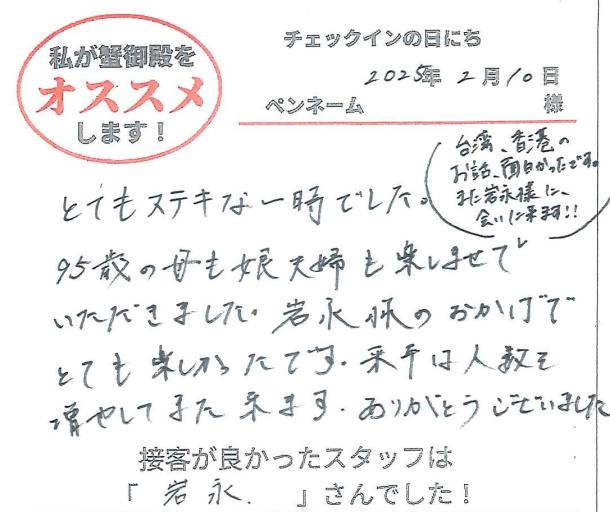 私が蟹御殿を
オススメ
します！
チェックインの日にち
2025年 2月10日
ペンネーム 様
台湾、香港の
お話、面白かったです。
また岩永様に、
会いに来ます!!
とてもステキな一時でした。
95歳の母も娘夫婦も楽しませて
いただきました。岩永様のおかげで
とても楽しかったです。来年は人数を
増やしてまた来ます。ありがとうございました
接客が良かったスタッフは
「 岩永. 」さんでした！